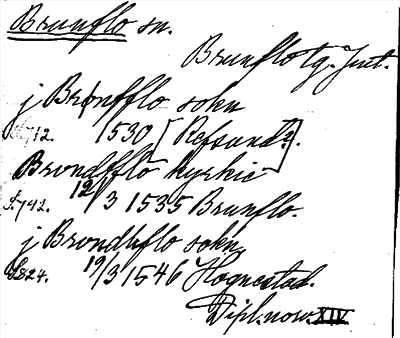 Brunflo sn.
Brunflo tg. Jmt.
j Brønfflo sokn
S.712. 1530 [Refsund?].
Brondflo kyrkie
S.742. 12/3 1535 Brunflo.
j Brondhflo sokn
S.824. 19/3 1546 Hognestad.
Dipl. norv. XIV